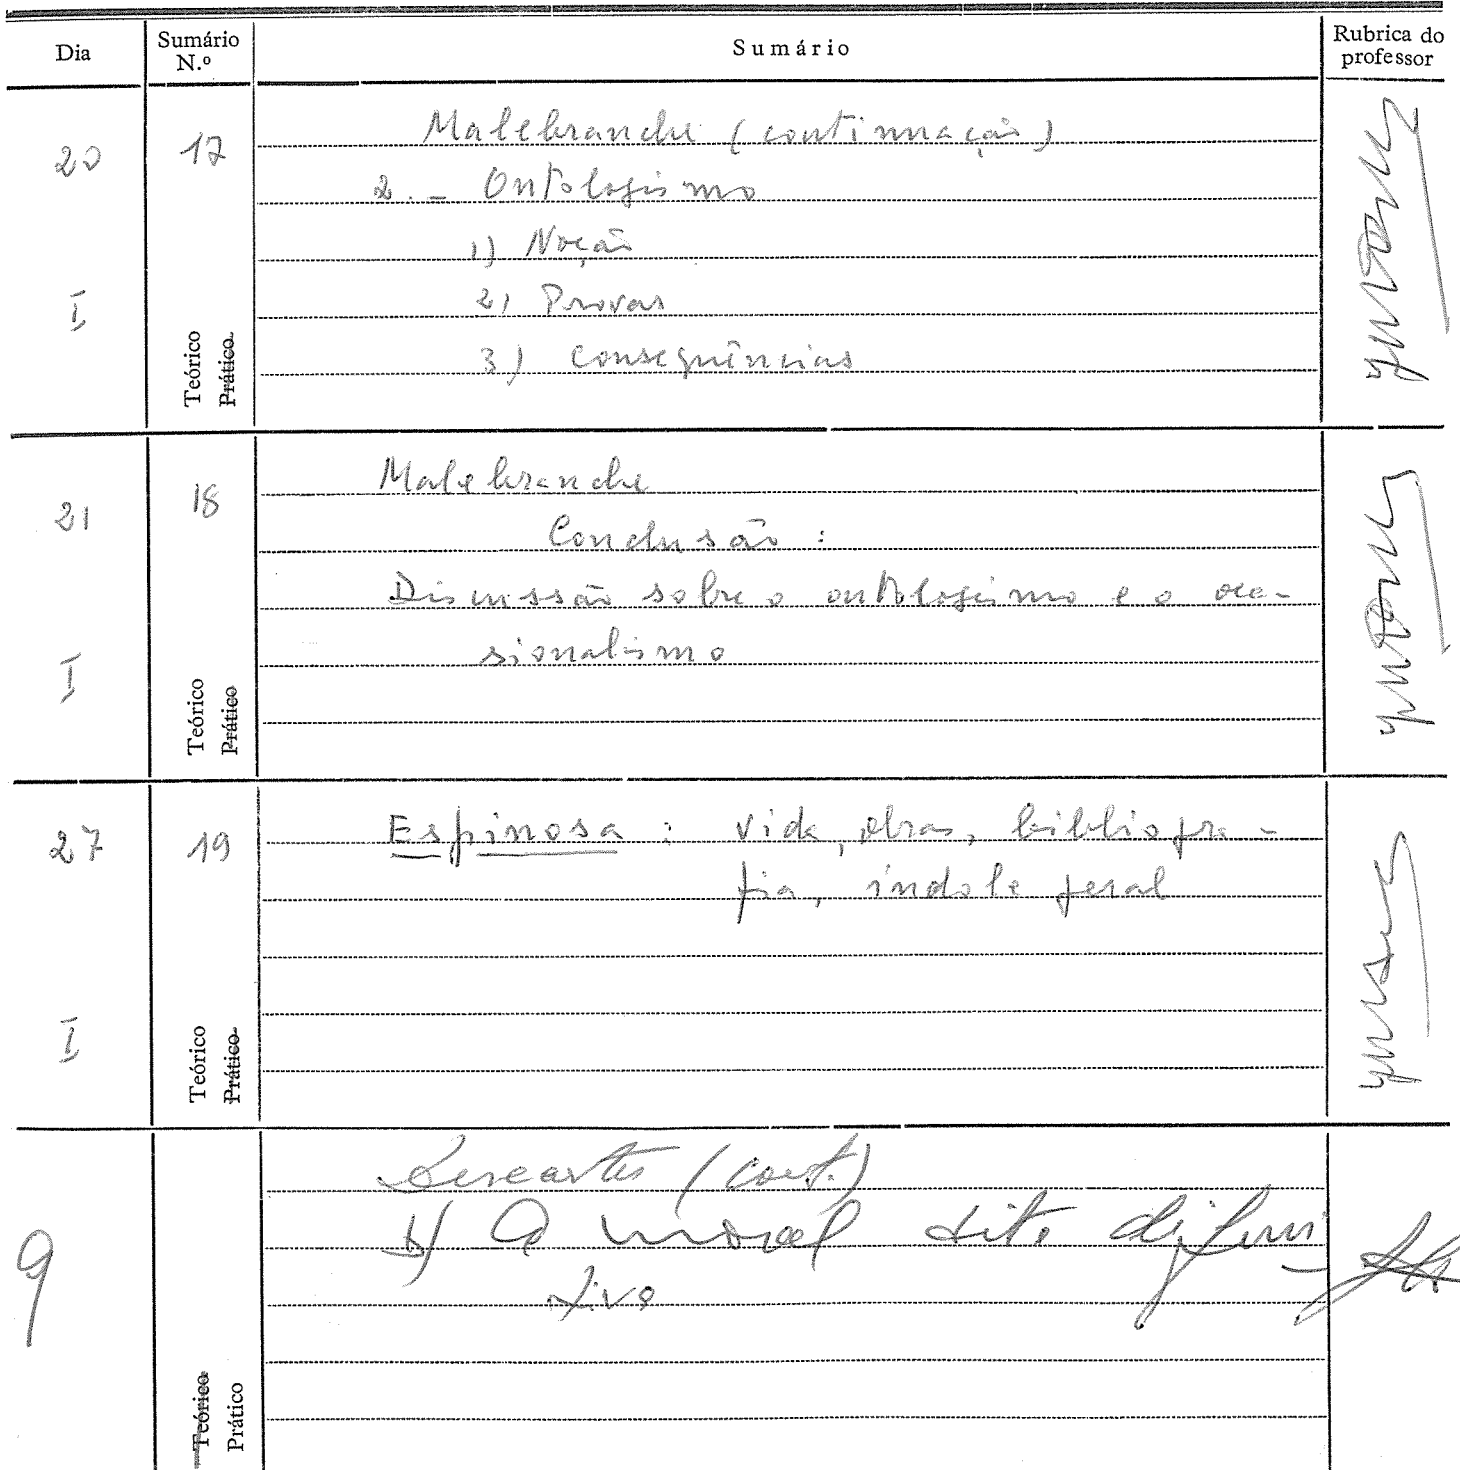 Dia
Sumário N.º
Sumário
Rubrica do professor
20
I
17
Teórico
Prático
Malebranche (continuação)
2. - Ontologismo
1) Noção
2) Provas
3) Consequências
21
I
18
Teórico
Prático
Malebranche
Conclusão :
Discussão sobre o ontologismo e o oca-
sionalismo
27
I
19
Teórico
Prático
Espinosa : vida, obras, bibliogra-
fia, índole geral
9
Teórico
Prático
Descartes (cont.)
b) A moral dita defini-
tiva